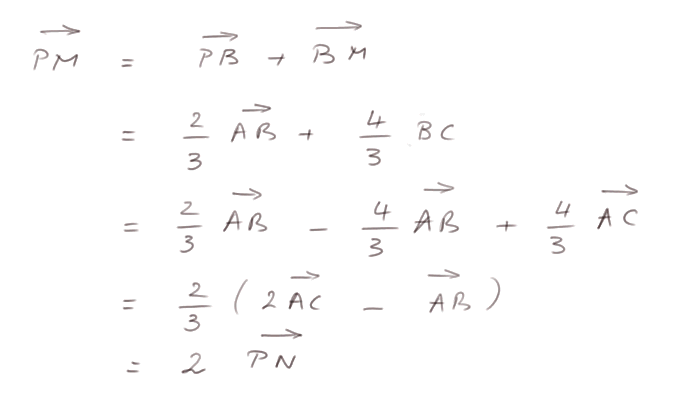 $\overrightarrow{PM} = \overrightarrow{PB} + \overrightarrow{BM}$
$= \frac{2}{3} \overrightarrow{AB} + \frac{4}{3} BC$
$= \frac{2}{3} \overrightarrow{AB} - \frac{4}{3} \overrightarrow{AB} + \frac{4}{3} \overrightarrow{AC}$
$= \frac{2}{3} ( 2 \overrightarrow{AC} - \overrightarrow{AB} )$
$= 2 \overrightarrow{PN}$